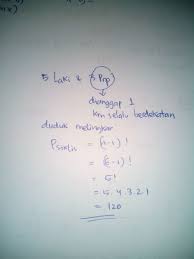 5 Laki & 3 Prp
dianggap 1
krn selalu berdekatan
duduk melingkar
P siklis = (n-1)!
= (6-1)!
= 5!
= 5.4.3.2.1
= 120